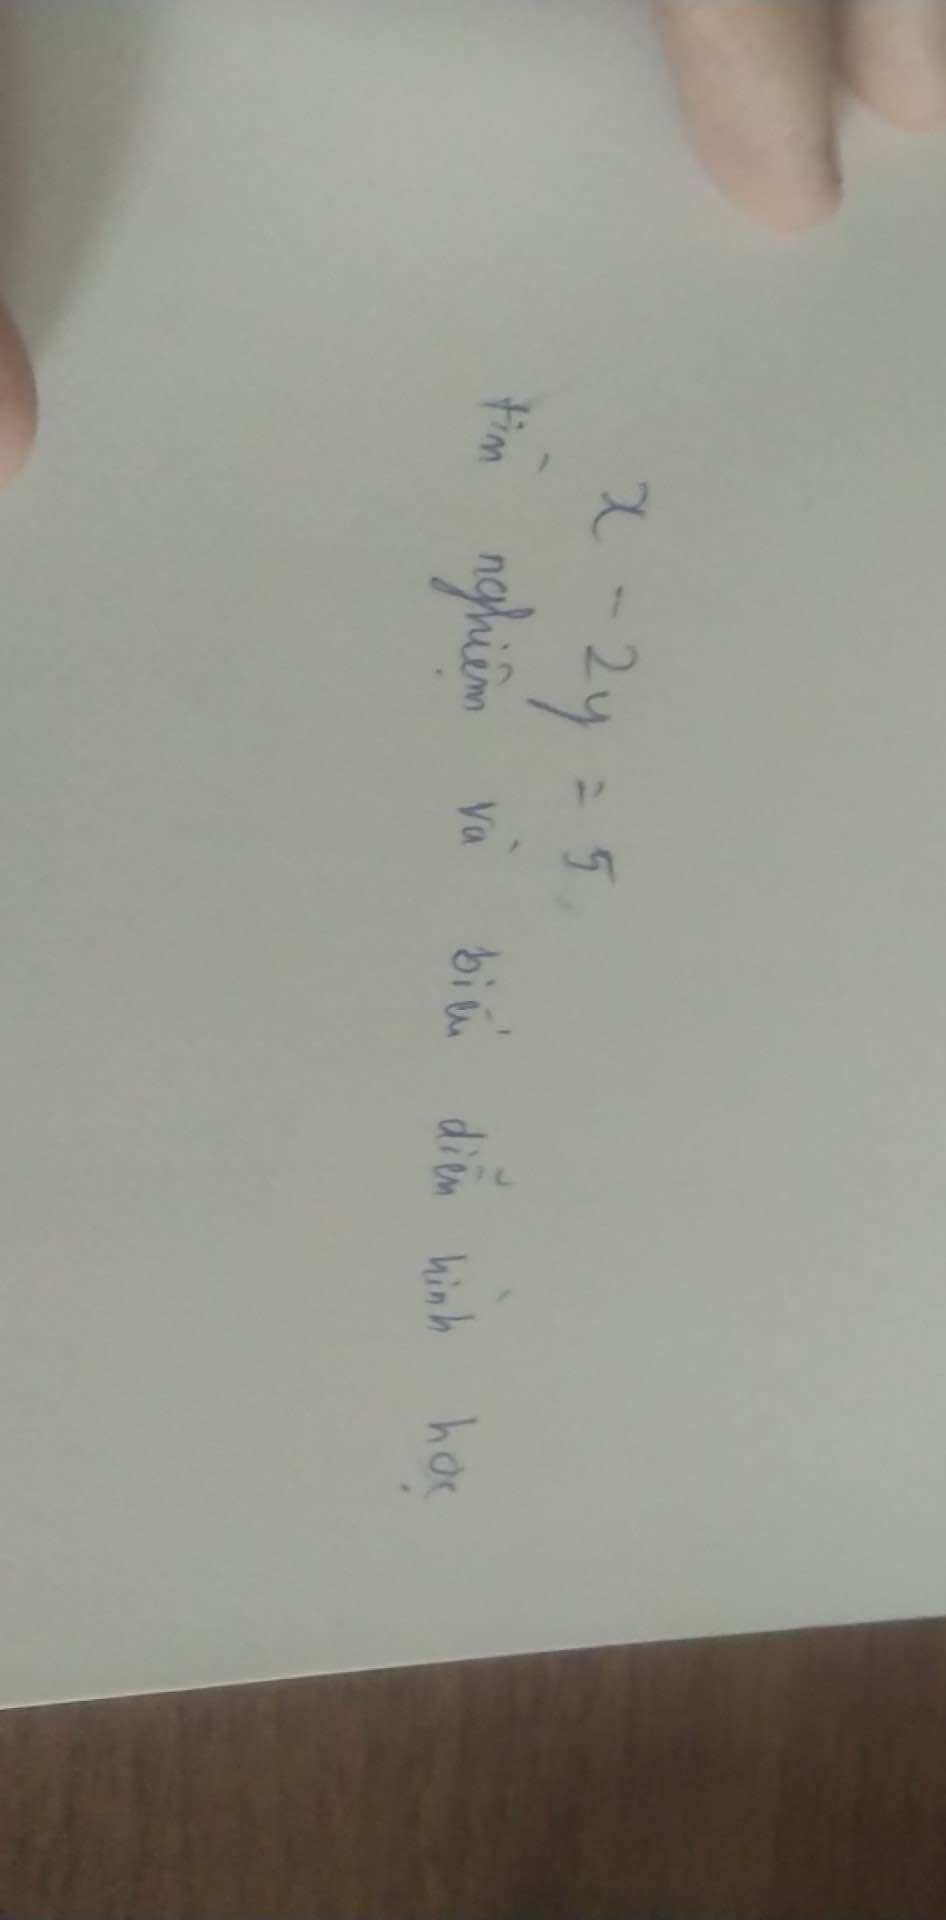 x - 2y = 5
tìm nghiệm và biểu diễn hình học